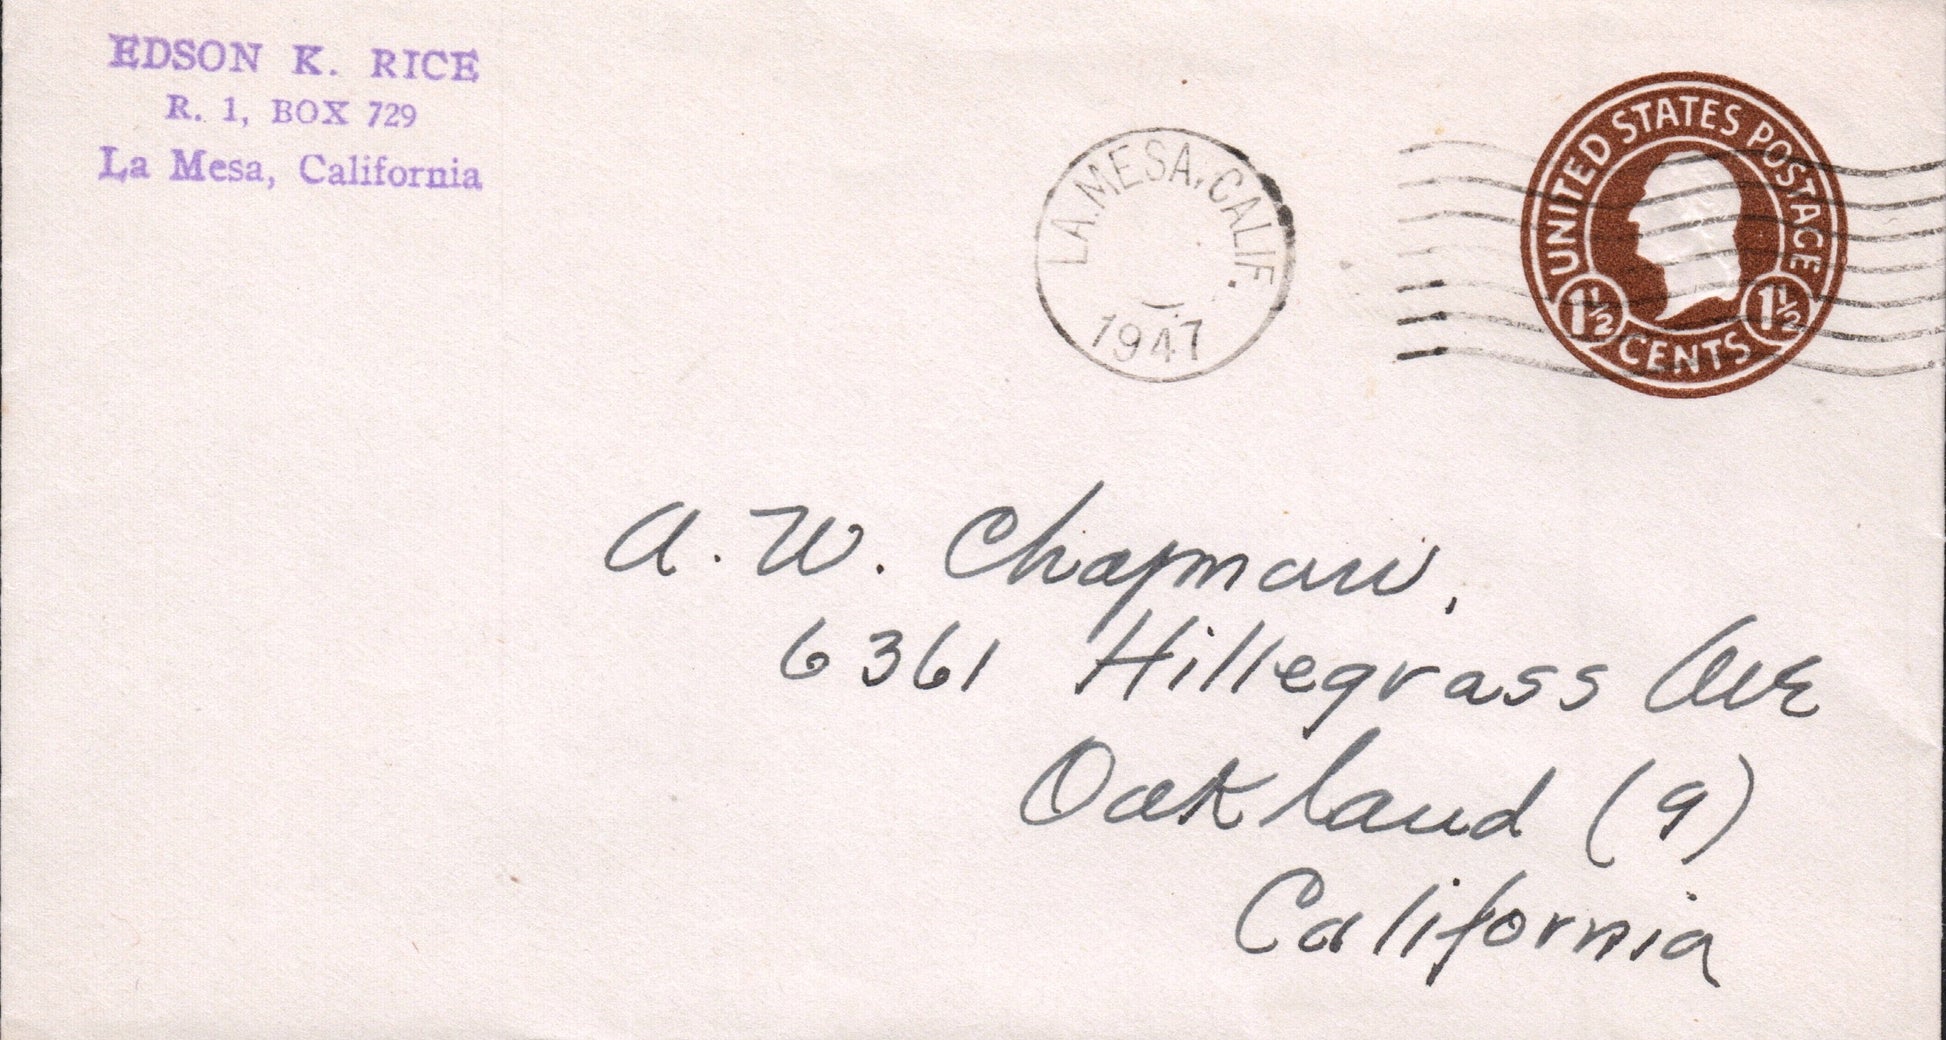 EDSON K. RICE
R. 1, BOX 729
La Mesa, California
LA. MESA, CALIF.
1947
UNITED STATES POSTAGE
1½ CENTS 1½
A. W. Chapman,
6361 Hillegrass Ave
Oakland (9)
California